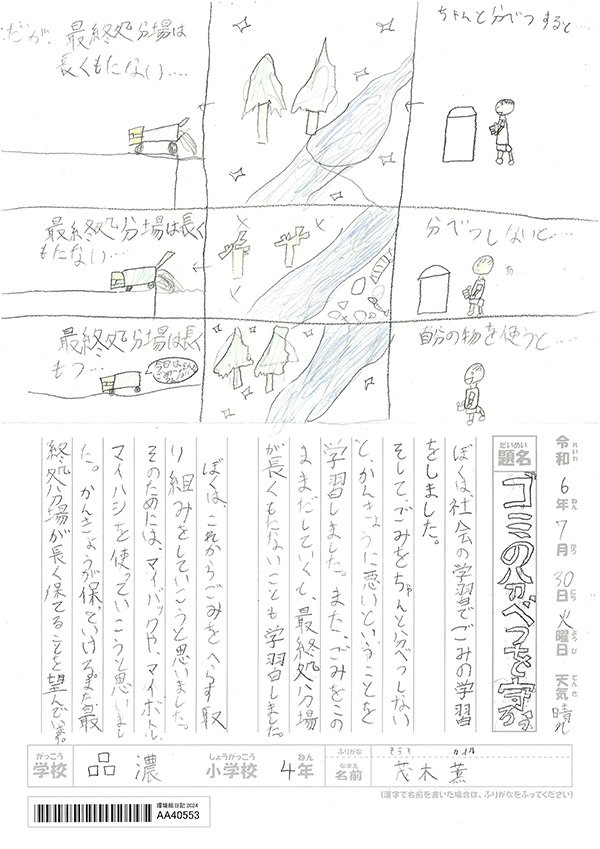 ちゃんと分べつすると…
だが、最終処分場は
長くもたない…
分べつしないと…
最終処分場は長く
もたない…
自分の物を使うと…
最終処分場は長く
もつ…
令和6年7月30日火曜日 天気 晴れ
れいわ ねん がつ にち ようび てんき
だいめい
題名
ゴミの分べつを守ろう
ぼくは社会の学習でごみの学習
をしました。
そして、ごみをちゃんと分べつしない
と、かんきょうに悪いということを
学習しました。また、ごみをこの
ままだしていくと、最終処分場
が長くもたないことも学習しました。
ぼくは、これからごみをへらす取
り組みをしていこうと思いました。
そのためには、マイバックや、マイボトル、
マイハシを使っていこうと思いまし
た。かんきょうが保っていける、また最
終処分場が長く保てることを望んでいます。
がっこう しょうがっこう ねん ふりがな
学校 品濃 小学校 4年
なまえ
名前 茂木 薫
(漢字で名前を書いた場合は、ふりがなをふってください)
環境絵日記 2024
AA40553